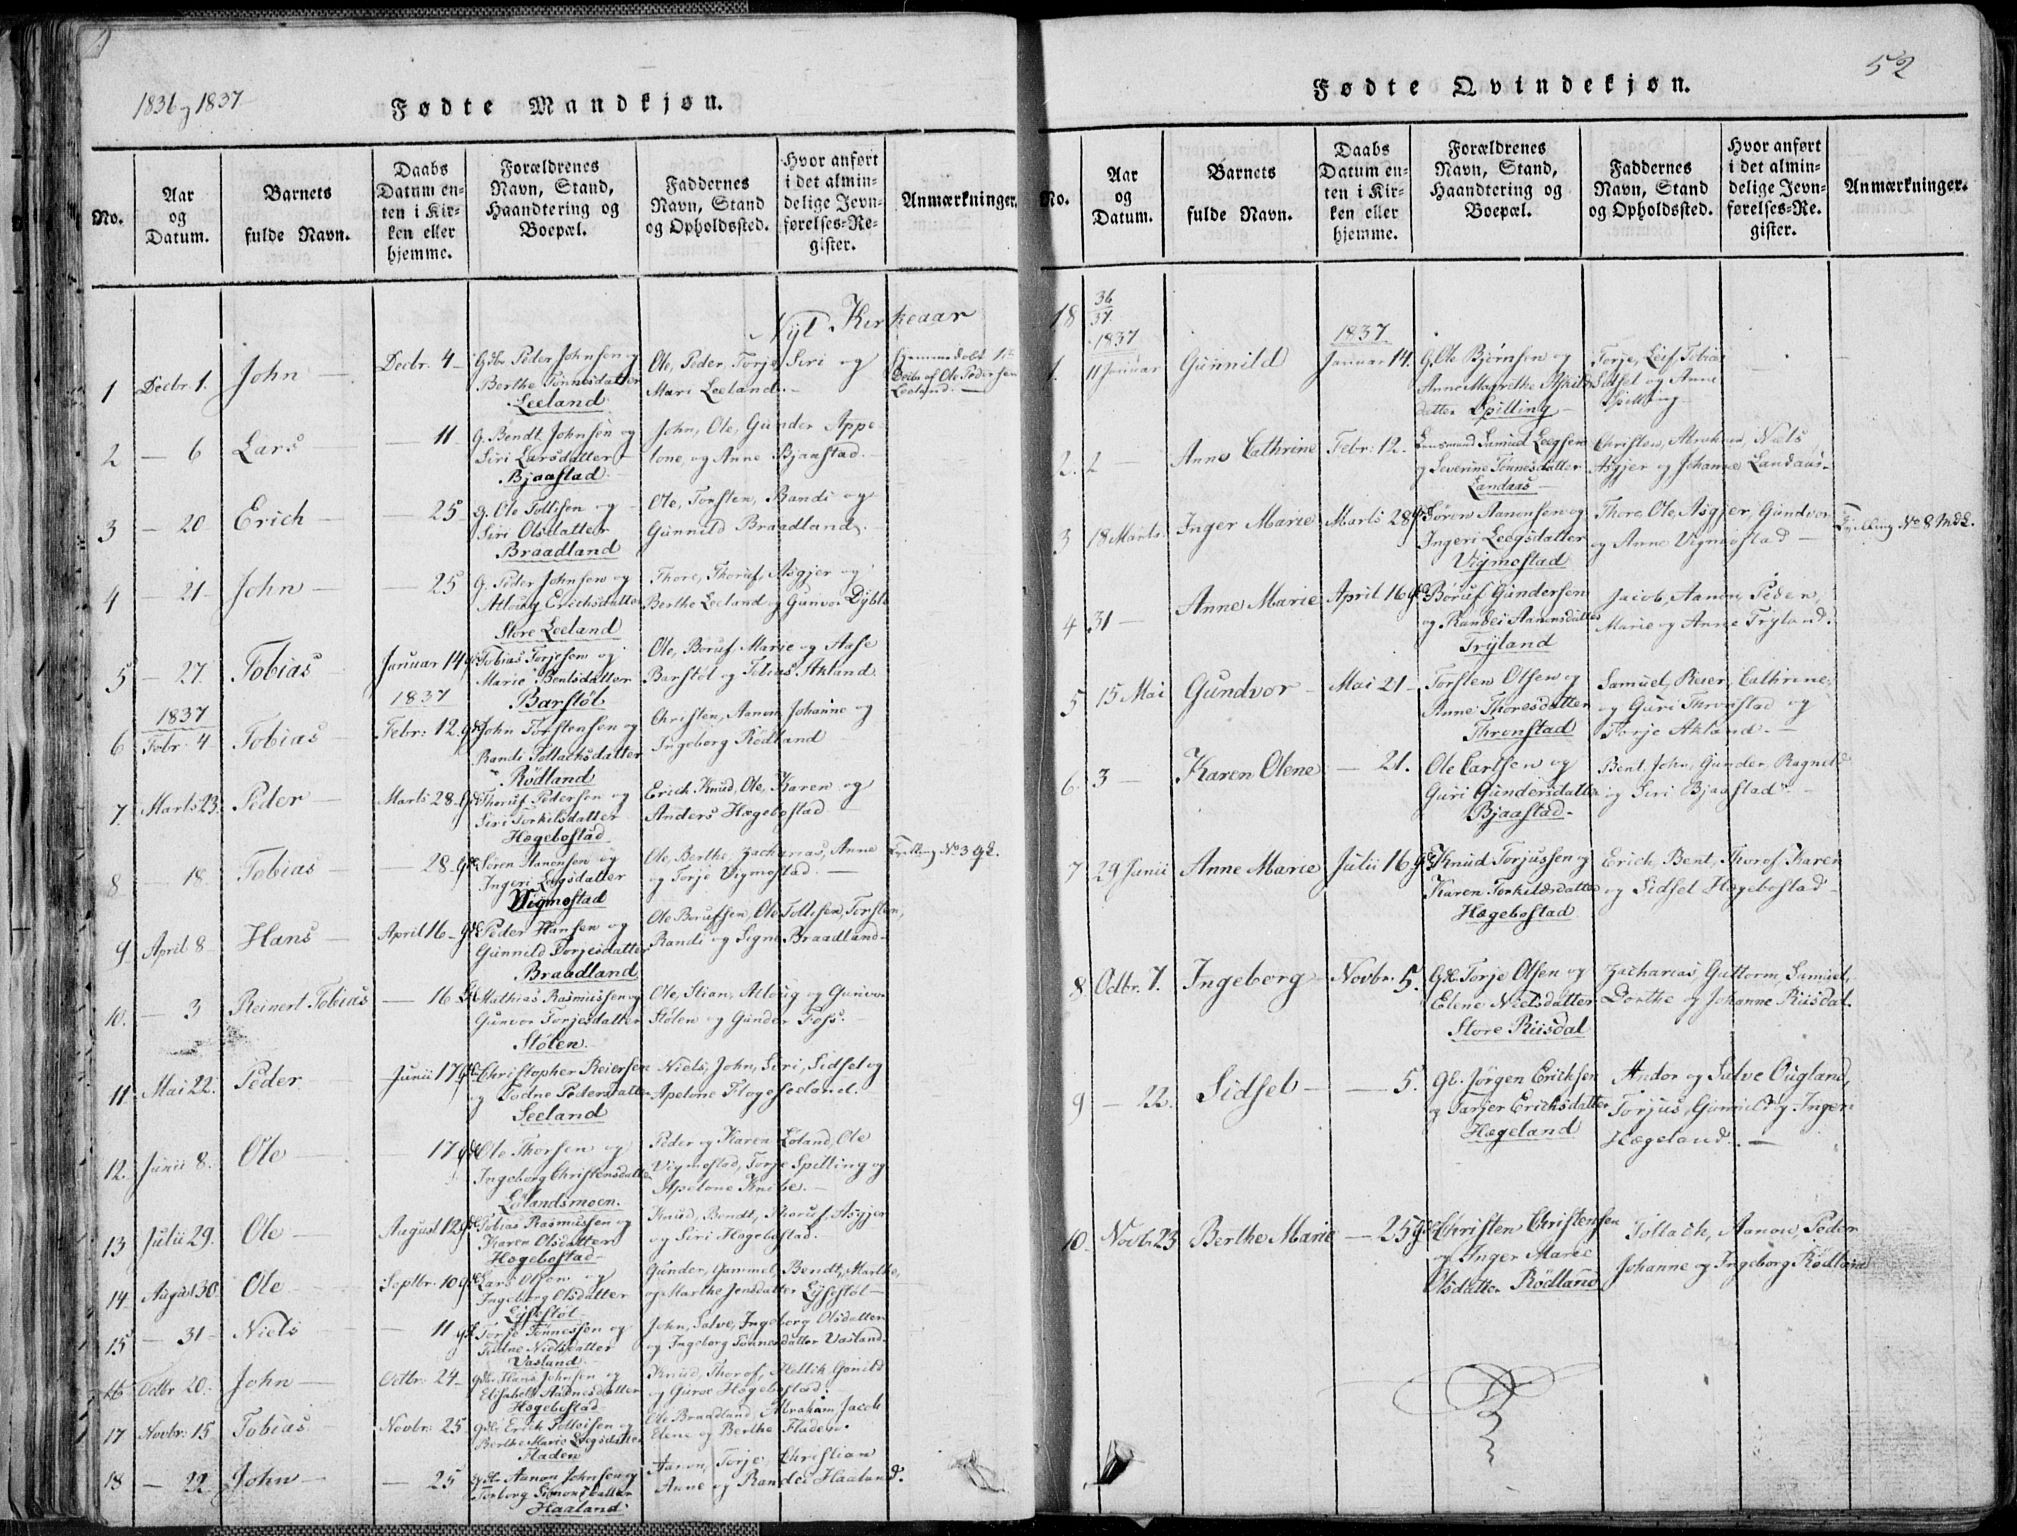 1836 og 1837
Fødte Mandkjøn.
No.
Aar og Datum.
Barnets fulde Navn.
Daabs Datum enten i Kirken eller hjemme.
Forældrenes Navn, Stand, Haandtering og Boepæl.
Faddernes Navn, Stand og Opholdssted.
Hvor anført i det almindelige Jevnførelses-Register.
Anmærkninger.
Nyt Kirkeaar
1 Decbr. 1. John Decbr. 4
Peder Johnsen og
Berthe Tønnesdatter
Leeland
Ole, Peder, Torje, Siri og
Mari Leeland.
Hjemmedøbt
Decbr af Ole Pedersen
Leeland.
2 — 6 Lars — 11
G. Bendt Johnsen og
Siri Larsdatter
Bjaastad
John, Ole, Gunder Appe-
lone, og Anne Bjaastad.
3 — 20 Erich — 25
G. Ole Tollisen og
Siri Olsdatter
Braadland
Ole, Torsten, Randi og
Gunnild Braadland.
4 — 21 John — 25
G. Peder Johnsen og
Atloug Erichsdatter
Store Leeland
Thore, Thoruf, Asgjer og
Berthe Leeland og Gunvor
5 — 27. Tobias Januar 14
1837
Tobias Torjesen og
Marie Bentsdatter
Barstøl
Ole, Boruf, Marie og Aase
Barstøl og Tobias Akland
1837
6 Febr: 4 Tobias Febr: 12.
John Torstensen og
Randi Tollachsdatter
Rödland
Christen, Aanon, Johanne og
Ingeborg Rödland
7. Marts 23. Peder Marts 28
Thoruf Pedersen og
Siri Torkilsdatter
Hægebostad
Erich Knud, Ole, Karen og
Anders Hægebostad
8 — 18. Tobias — 28
Sören Aanonsen og
Ingeri Leegsdatter
Vigmostad
Ole, Berthe, Zacharias, Anne
og Torje Vigmostad.
Tvilling No 3
9 April 8 Hans April 16
Peder Hansen og
Gunnild Torjesdatter
Braadland
Ole Borufsen, Ole Tollisen, Torsten,
Randi og Signe Braadland
10. — 3 Reinert Tobias — 16
Mathias Rasmussen og
Gunvor Torjesdatter
Stølen.
Ole, Stian, Atloug og Gunvor
Stølen og Gunder Foss.
11 Mai 22. Peder Junii 17
Christopher Reiersen
og Todne Pedersdatter
Seeland
Niels, John, Siri, Sidsel og
Apelone
12. Junii 8. Ole — 17
Ole Thorsen og
Ingeborg Christensdatter
Lölandsmoen.
Peder og Karen Löland, Ole
Vigmostad, Torje Spilling og
Apelone Knibe.
13 Julii 29. Ole August 12
Tobias Rasmussen og
Karen Olsdatter
Hægebostad
Knud, Bendt, Thoruf, Asgjer
og Siri Hægebostad.
14 August 30 Ole Septbr. 10
Lars Olsen og
Ingeborg Olsdatter
Lysestøl
Gunder, Gammel, Bendt, Marthe,
og Marthe Jensdatter Lysestøl
15 — 31 Niels — 11
Torje Tønnesen og
Nielsdatter
Vasland
John, Salve, Ingeborg Olsdatter
og Ingeborg Tønnesdatter Vasland.
16 Octbr 20. John Octbr. 24
Hans Johnsen og
Elisabeth Aadnesdatter
Hægebostad
Knud, Thorof, Mellik Gonild
og Guroe Hægebostad.
17 Novbr. 15 Tobias Novbr. 25
Erich Tolleisen og
Berthe Marie Leegsdatter
Fladen
Ole Braadland, Abraham, Jacob
Elene og Berthe Fladen.
18 — 22 John — 25
Aanon Johnsen og
Torborg Simonsdatter
Haaland
Aanon, Torje, Christian
Anne og Randei Haaland.
52
Fødte Qvindekjøn.
No.
Aar og Datum.
Barnets fulde Navn.
Daabs Datum enten i Kirken eller hjemme.
Forældrenes Navn, Stand, Haandtering og Boepæl.
Faddernes Navn, Stand og Opholdssted.
Hvor anført i det almindelige Jevnførelses-Re. gister.
Anmærkninger.
18 36/37.
1837 1837
1. 11 Januar Gunnild Januar 14.
G. Ole Bjørnsen og
Anne Magrethe
datter Spilling
Torje, Leif, Tobias
Sidsel og Anne
Spilling
2. 2 — Anne Cathrine Febr: 12.
Lensmand Samuel Leegsen
og Severine Tønnesdatter
Landaas
Christen, Abraham, Niels
Asgjer og Johanne Landaas
3 18 Marts Inger Marie Marts 28
Sören Aanonsen og
Ingeri Leegsdatter
Vigmostad
Thore, Ole, Asgjer, Gundvor
og Anne Vigmostad
Tvilling No 8
4 31 — Anne Marie April 16
Boruf Gundersen
og Randei Aanonsdatter
Tryland
Jacob, Aanon, Peder,
Marie og Anne Tryland.
5 15 Mai Gundvor Mai 21
Torsten Olsen og
Anne Thoresdatter
Thronstad
Samuel, Reier, Cathrine,
og Guri Thronstad og
Torje Akland.
6. 3 — Karen Olene — 21.
Ole Carlsen og
Guri Gundersdatter
Bjaastad
Bent, John, Gunder, Ragnild
og Siri Bjaastad.
7 29 Junii Anne Marie Julii 16
Knud Torjussen og
Karen Torkildsdatter
Hægebostad
Erich, Bent, Thorof, Karen
og Sidsel Hægebostad
8 Octbr. 7. Ingeborg Novbr. 5.
Torje Olsen og
Elene Nielsdatter
Store Riisdal
Zacharias, Guttorm, Samuel,
Dorthe og Johanne Riisdal.
9 — 22. Sidsel — 5.
Jörgen Ericksen
og Tarjer Erichsdatter
Hægeland
Andor og Salve Ougland,
Torjus, Gunnild og Ingeri
Hægeland.
10. Novbr 23 Berthe Marie — 25
Christen Christensen
og Inger Marie
Olsdatter Rödland
Tollach, Aanon, Peder
Johanne og Ingeborg Rødland